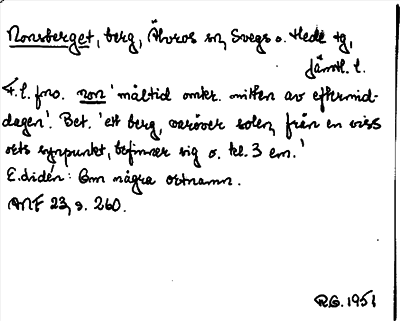 Nonsberget, berg, Älvros sn, Svegs o. Hede tg,
Jämtl. l.
F.l. fno. non 'måltid omkr. mitten av eftermid-
dagen'. Bet. 'ett berg, varöver solen, från en viss
orts synpunkt, befinner sig o. kl. 3 em.'
E. Lidén: Om några ortnamn.
ANF 23, s. 260.
R.G. 1951